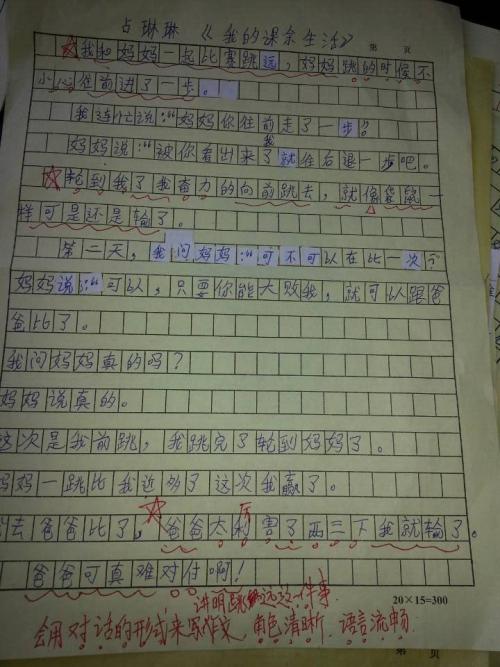 占琳琳 《我的课余生活》
第 页
我和妈妈一起比赛跳远，妈妈跳的时候不
小心往前进了一步。
我连忙说："妈妈你往前走了一步。"
妈妈说："被你看出来了我就往右退一步吧。
轮到我了我奋力的向前跳去，就像袋鼠一
样可是还是输了。
第二天，我问妈妈："可不可以在比一次?
妈妈说："可以，只要你能大败我，就可以跟爸
爸比了。
我问妈妈真的吗？
妈妈说真的。
这次是我前跳，我跳完了轮到妈妈了。
妈妈一跳比我近多了这次我赢了。
去爸爸比了，爸爸太利害了两三下我就输了。
厉
爸爸可真难对付啊！
20×15=300
讲明跳远这一件事
会用对话的形式来写作文，角色清晰，语言流畅。
第 页